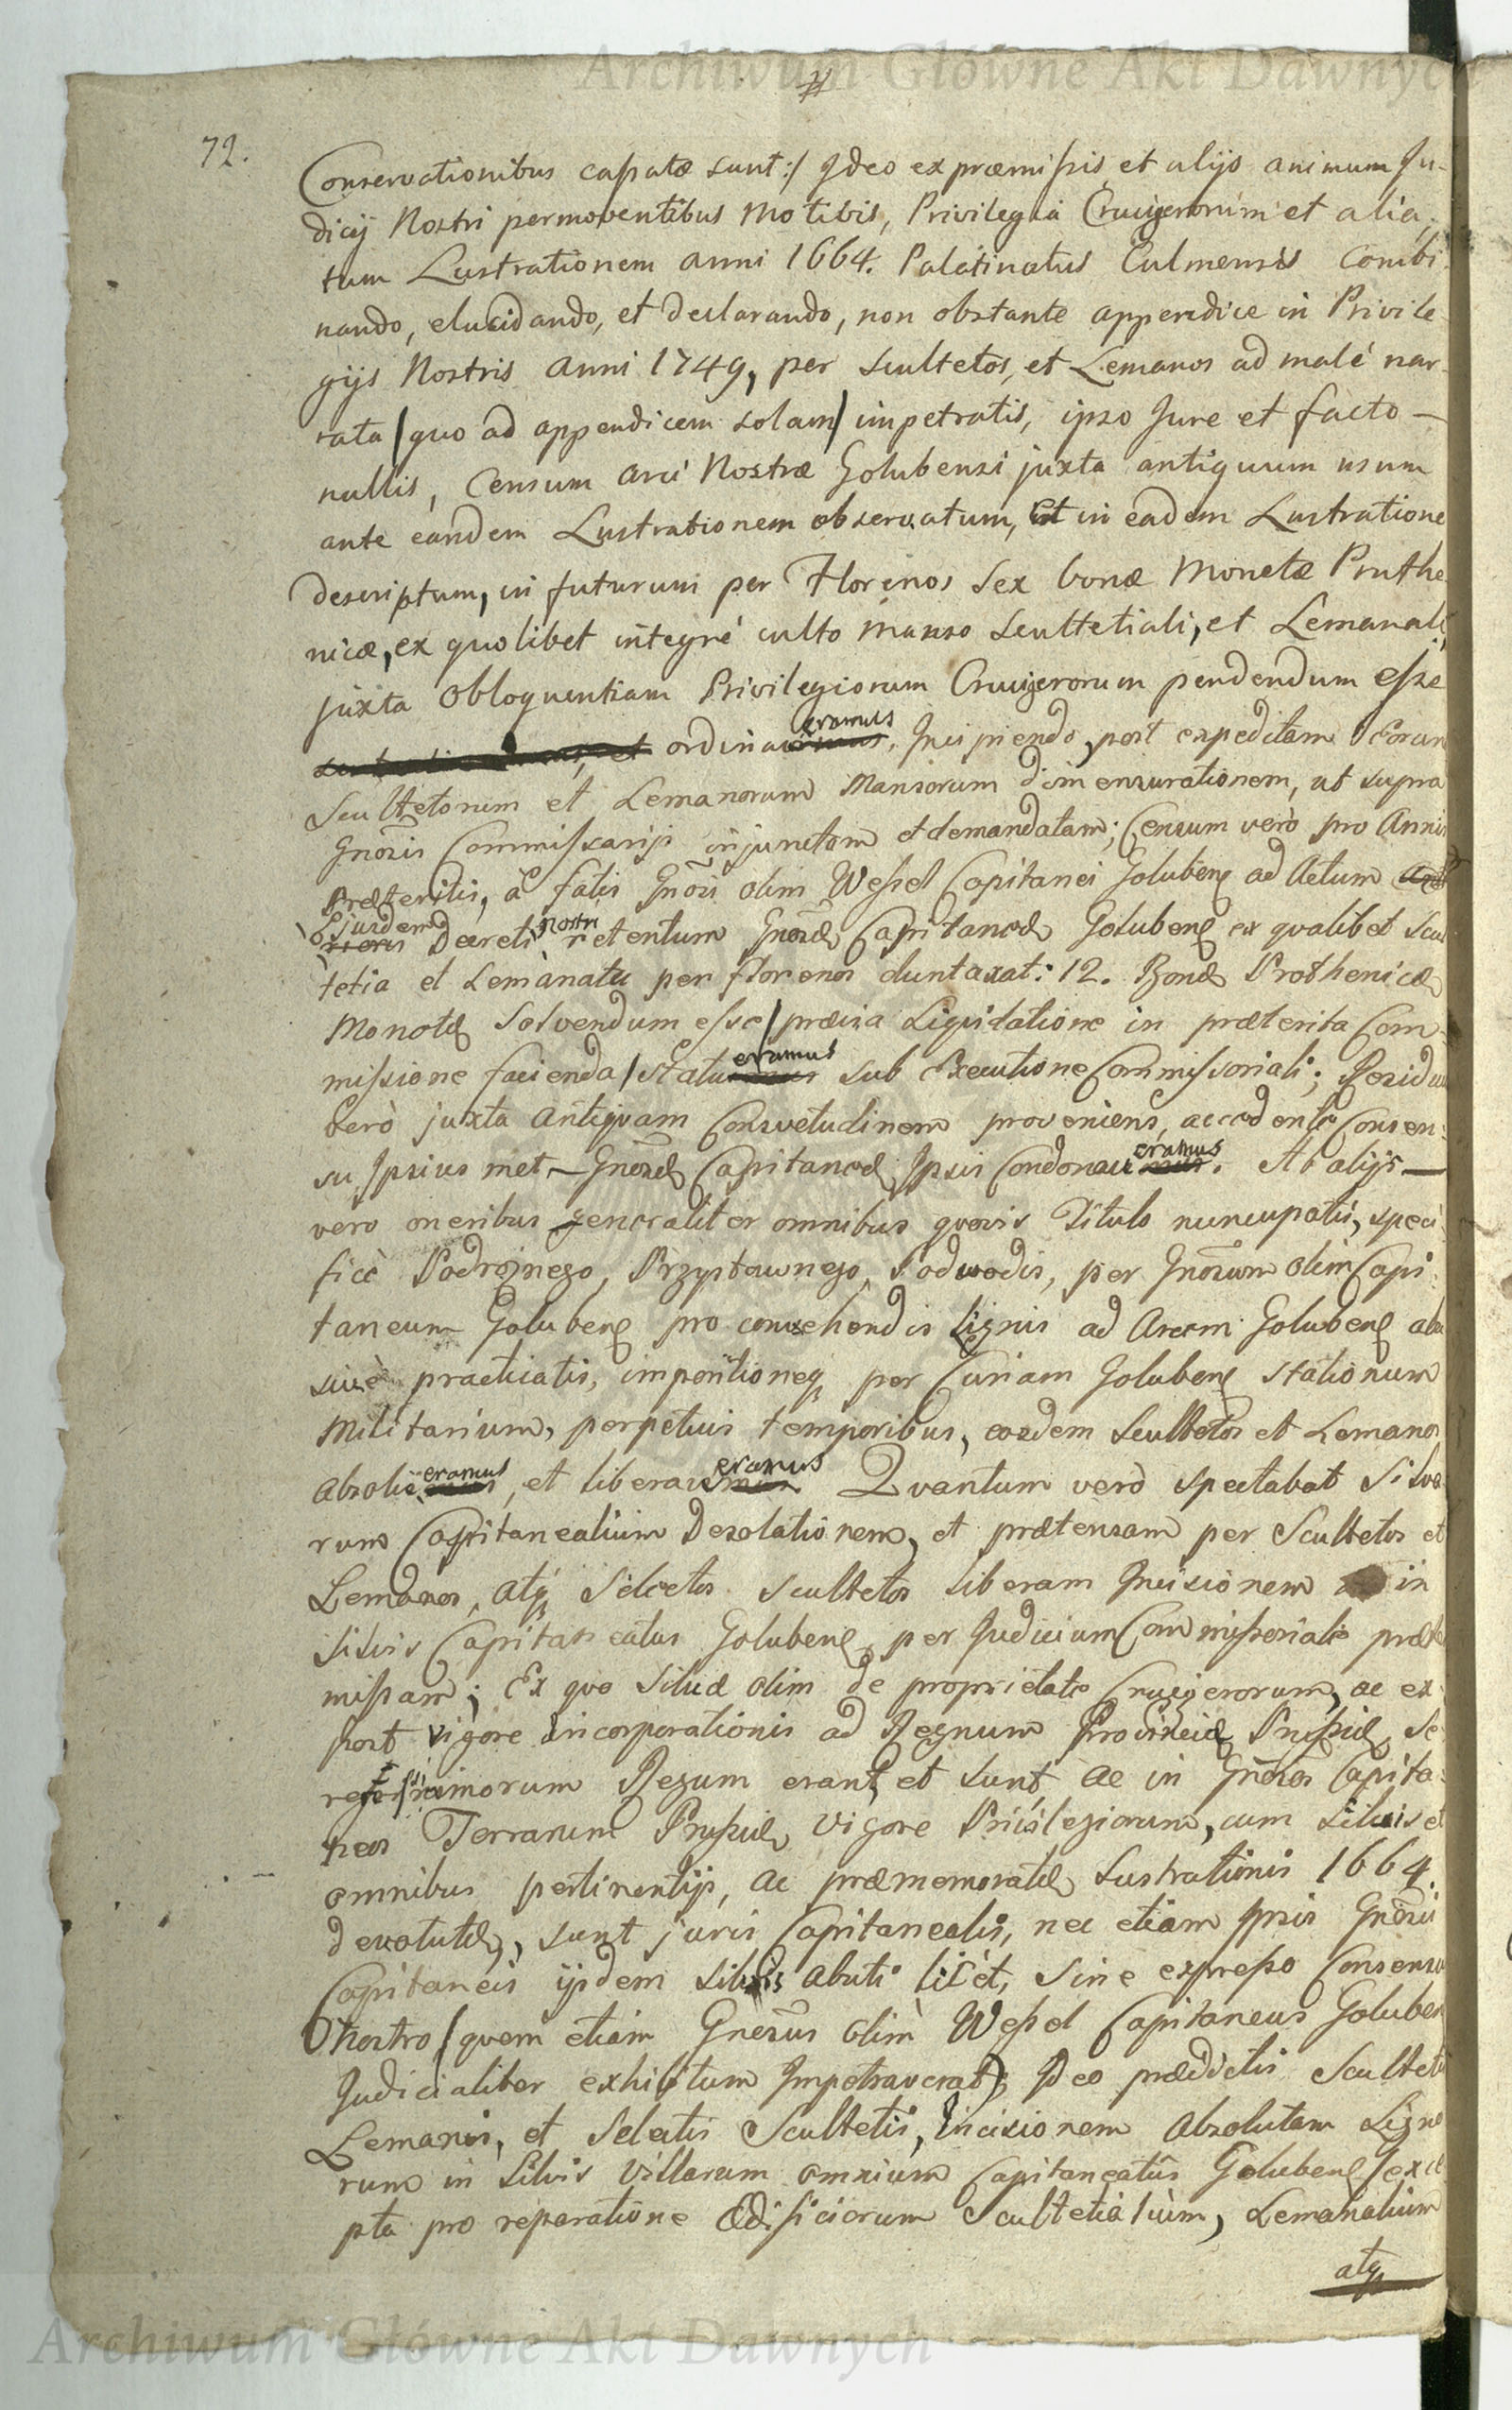 Archiwum Główne Akt Dawnych
72.
Conservationibus capatæ sunt:/ Ideo ex præmissis et alijs animum Ju-
dicij Nostri permoventibus Motibis, Privilegia Crucigerorum et alia,
tum Lustrationem anni 1664. Palatinatus Culmensis combi-
nando, elucidando, et declarando, non obstante appendice in Privile-
gijs Nostris Anni 1749, per Scultetos, et Lemanos ad malè nar-
rata /quo ad appendicem solam/ impetratis, ipso Jure et facto —
nullis, Censum Arci Nostræ Golubensi juxta antiquum usum
ante eandem Lustrationem observatum, et in eadem Lustratione
descriptum, in futurum per Florenos Sex bonæ Monetæ Pruthe-
nicæ, ex quolibet integrè culto Manso Scultetiali, et Lemanali,
juxta Obloquentiam Privilegiorum Crucigerorum pendendum esse
ordinaveramus, Incipiendo, post expeditam Eorum
Scultetorum et Lemanorum Mansorum dimensurationem, ut supra
Gnõsis Commissarijs injunctam et demandatam; Censum verò pro Annis
Præteritis, à fatis Gnõsi olim Wessel Capitanei Golubens ad Actum
Ejusdem Decreti Nostri retentum Gnosæ Capitaneæ Golubens ex qvalibet Scul-
tetia et Lemanatu per florenos duntaxat: 12. Bonæ Prothenicæ
Monetæ Solvendum esse /prævia Liquidatione in præterita Com-
missione facienda/ statueramus sub Executione Commissoriali; Residuum
verò juxta Antiquam Consvetudinem proveniens, accedente Consen-
su Ipsius met — Gnosæ Capitaneæ Ipsis Condonaveramus. Ab alijs —
vero oneribus generaliter omnibus qvovis Titulo nuncupatis, speci-
ficè Podrożnego, Przystawnego, Podwodis, per Gnõsum olim Capi-
taneum Golubens pro convehendis Lignis ad Arcem Golubens abu-
sivè practicatis, impositioneq per Curiam Golubens Stationum
Militarium, perpetuis temporibus, eosdem Scultetos et Lemanos
absolveramus, et liberaveramus Qvantum verò spectabat Silva-
rum Capitanealium Desolationem, et prætensam per Scultetos et
Lemanos, atq Selectos Scultetos liberam Incisionem in
Silvis Capitaneatus Golubens, per Judicium Commissoriale præter-
missam; Ex quo Silvæ olim de proprietate Crucigerorum, ac ex
post vigore incorporationis ad Regnum Provinciæ Prussiæ, Se-
renissimorum Regum erant, et sunt, ac in Gnõsos Capita-
neos Terrarum Prussiæ, Vigore Privilegiorum, cum Silvis et
omnibus pertinentijs, ac præmemoratæ Lustrationis 1664.
devolutæ, sunt juris Capitanealis, nec etiam Ipsis Gnõsis
Capitaneis ijsdem Silvis abuti licèt, sine expresso Consensu
Nostro /quem etiam Gnosus olim Wessel Capitaneus Goluben
Judicialiter exhibitum Impetraverat); Ideo prædictis Scultetis
Lemanis, et Selectis Scultetis, Incisionem Absolutam Ligno-
rum in Silvis Villarum omnium Capitaneatus Golubens /exce-
pta pro reparatione Ædificiorum Scultetialium, Lemanalium
atq
Archiwum Główne Akt Dawnych